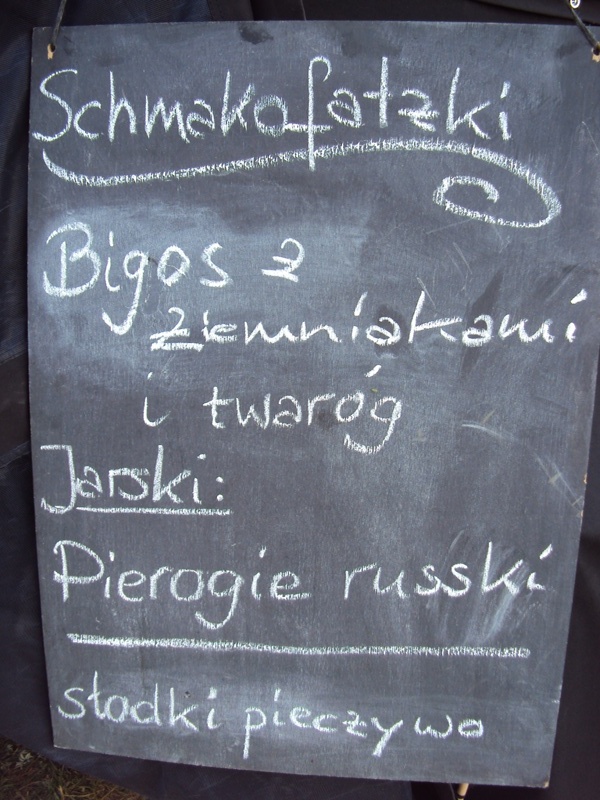 Schmakofatzki
Bigos z
ziemniakami
i twaróg
Jarski:
Pierogie russki
słodki pieczywo